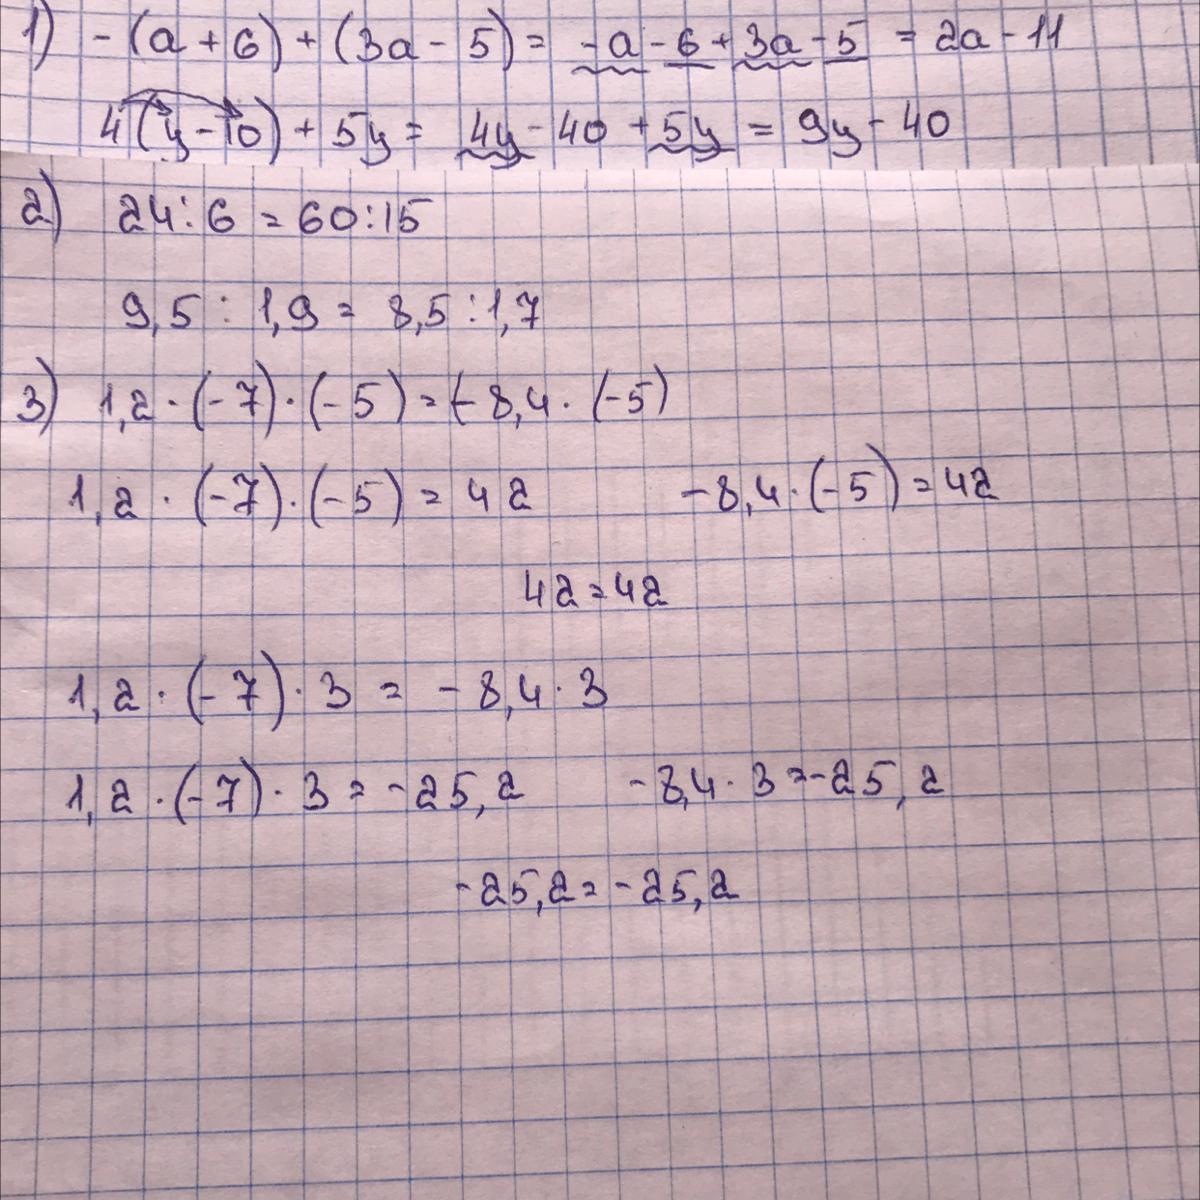 1) -(a+6)+(3a-5)= -a-6+3a-5 = 2a-11
4(y-10)+5y= 4y-40+5y = 9y-40
2) 24:6=60:15
9,5:1,9= 8,5:1,7
3) 1,2·(-7)·(-5)=(-8,4·(-5)
1,2·(-7)·(-5)=42 -8,4·(-5)=42
42=42
1,2·(-7)·3 = -8,4·3
1,2·(-7)·3=-25,2 -8,4·3=-25,2
-25,2=-25,2